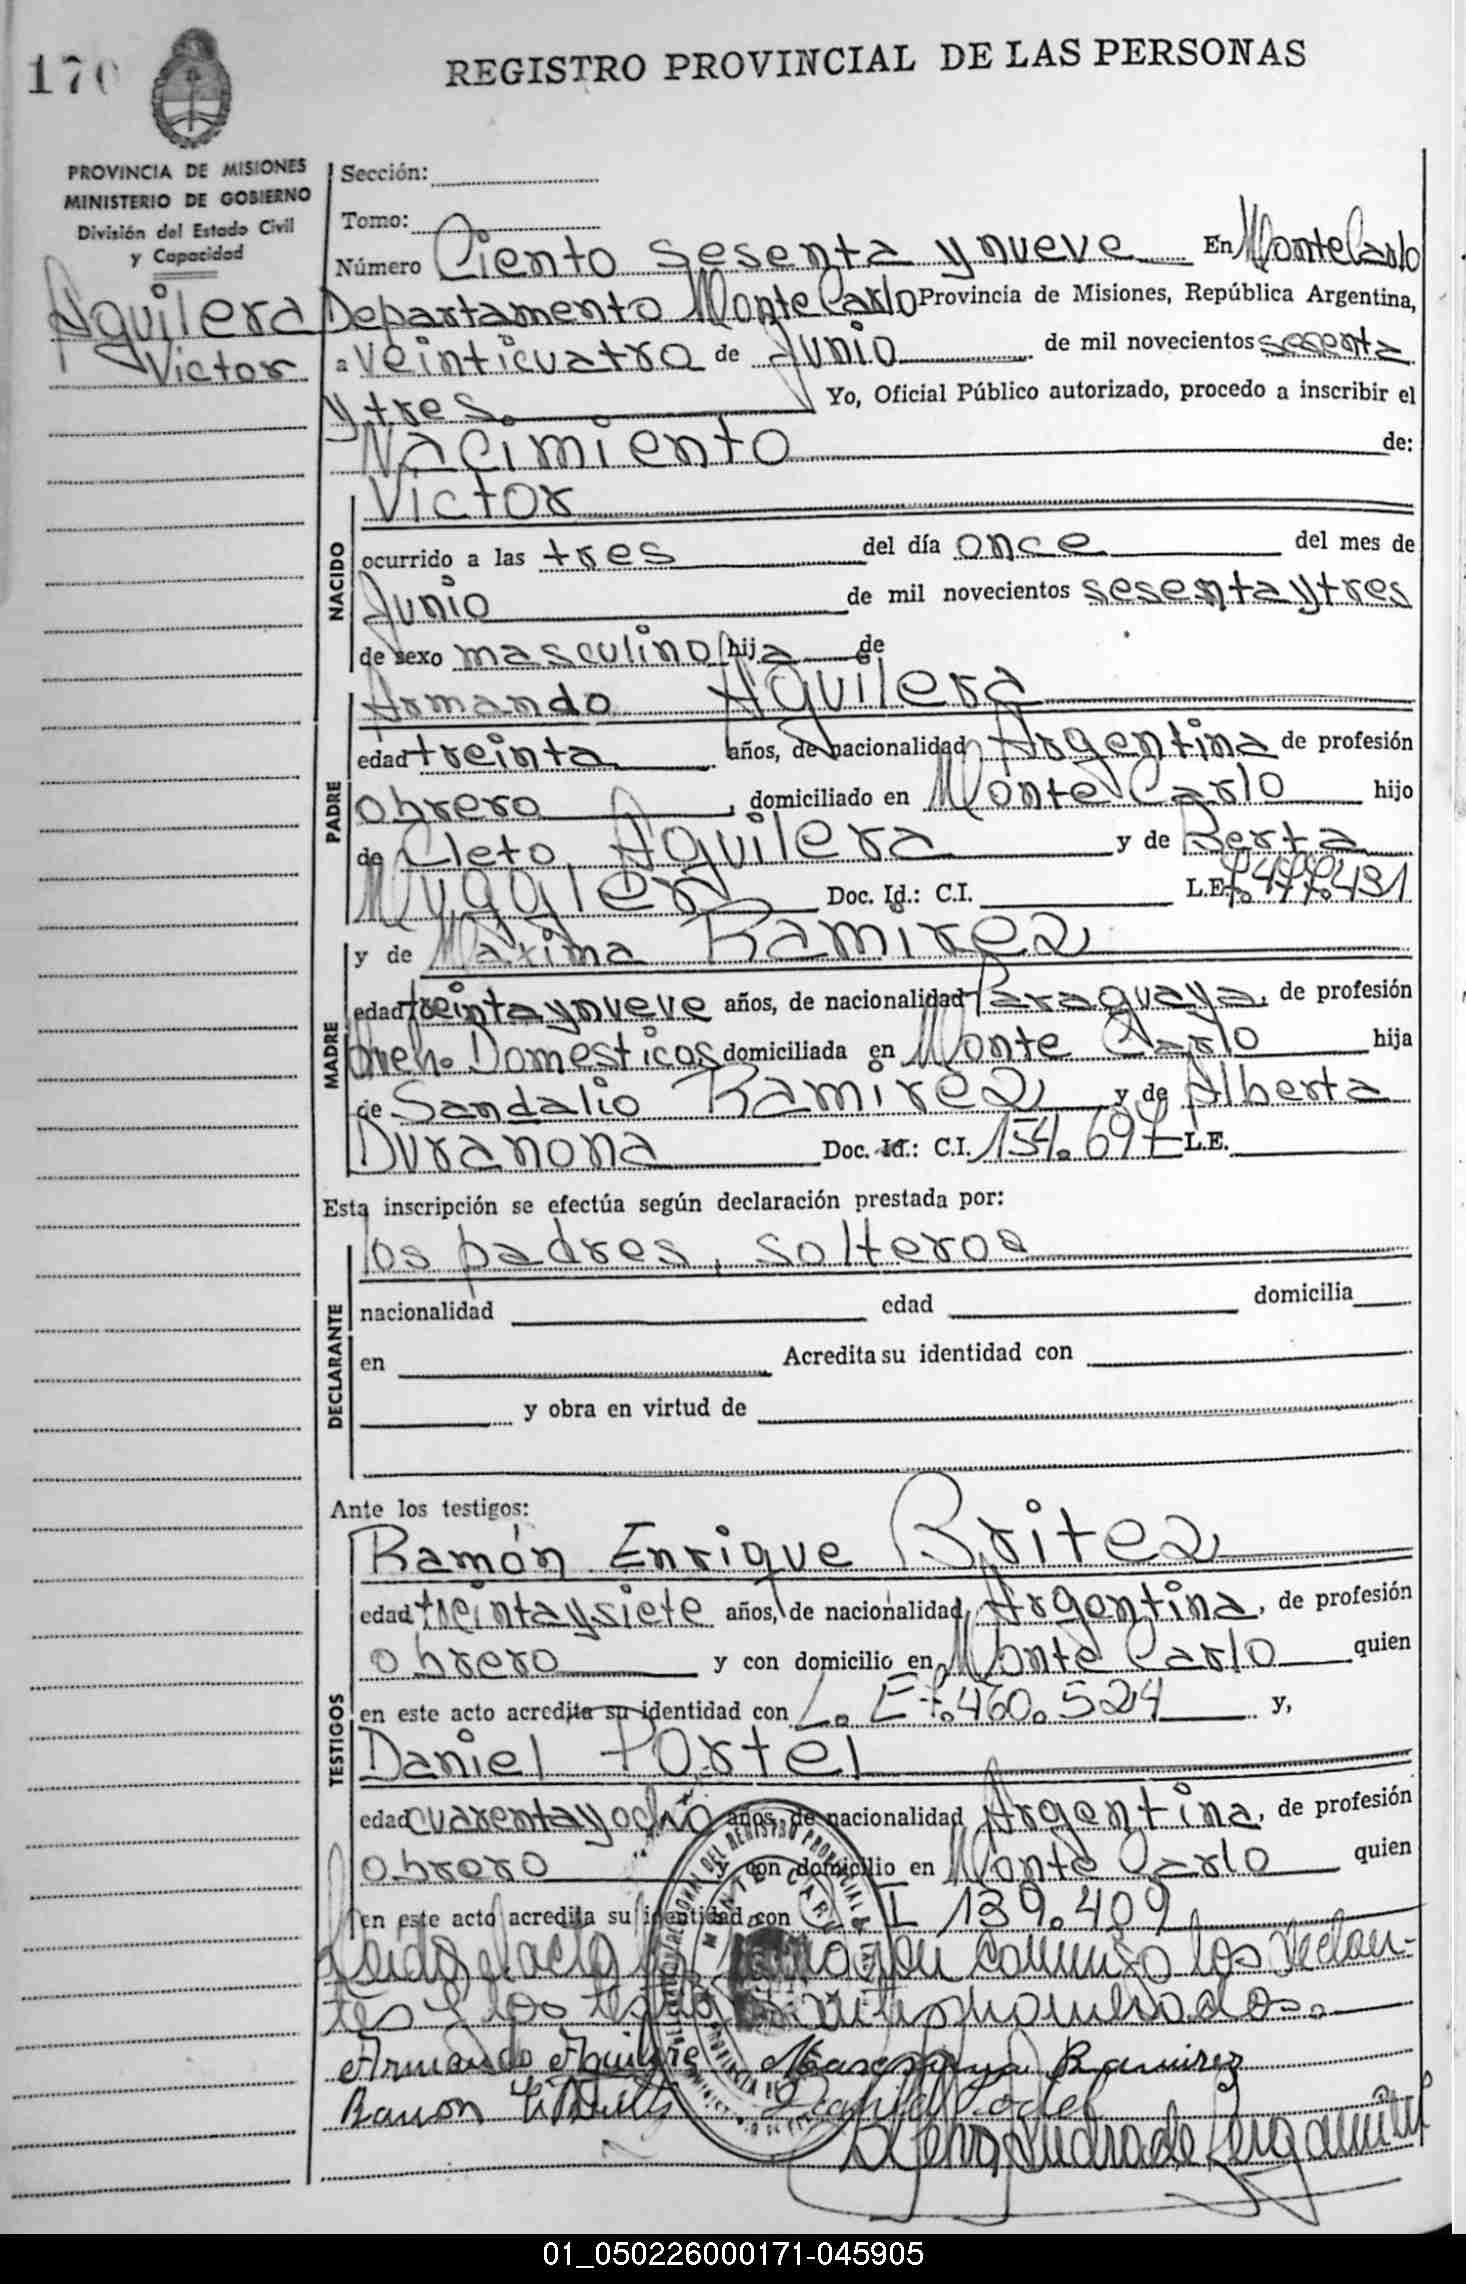 170
REGISTRO PROVINCIAL DE LAS PERSONAS
PROVINCIA DE MISIONES
MINISTERIO DE GOBIERNO
División del Estado Civil
y Capacidad
Aguilera
Victor
Sección:
Tomo:
Número Ciento sesenta y nueve En Monte Carlo
Departamento Monte Carlo Provincia de Misiones, República Argentina,
a veinticuatro de Junio de mil novecientos sesenta
y tres. Yo, Oficial Público autorizado, procedo a inscribir el
Nacimiento de:
NACIDO
Victor
ocurrido a las tres del día once del mes de
Junio de mil novecientos sesenta y tres
de sexo masculino hija de
PADRE
Armando Aguilera
edad treinta años, de nacionalidad Argentina de profesión
obrero, domiciliado en Monte Carlo hijo
de Cleto Aguilera y de Berta
Muggler Doc. Id.: C.I. L.E. 7.477.431
MADRE
y de Maxima Ramirez
edad treinta y nueve años, de nacionalidad Paraguaya, de profesión
Queh. Domesticos domiciliada en Monte Carlo hija
de Sandalio Ramirez y de Alberta
Duranona Doc. Id.: C.I. 154.697 L.E.
Esta inscripción se efectúa según declaración prestada por:
DECLARANTE
los padres, solteros
nacionalidad edad domicilia
en Acredita su identidad con
y obra en virtud de
Ante los testigos:
TESTIGOS
Ramón Enrique Britez
edad treinta y siete años, de nacionalidad Argentina, de profesión
obrero y con domicilio en Monte Carlo quien
en este acto acredita su identidad con L. E 7.460.524 y,
Daniel Portel
edad cuarenta y ocho años, de nacionalidad Argentina, de profesión
obrero y con domicilio en Monte Carlo quien
en este acto acredita su identidad con C I 139.409
Leida el acta conmigo los declaran-
tes y los testigos antes nombrados.
Armando Ramirez
Ramon Daniel
MONTE CARLO
01_050226000171-045905